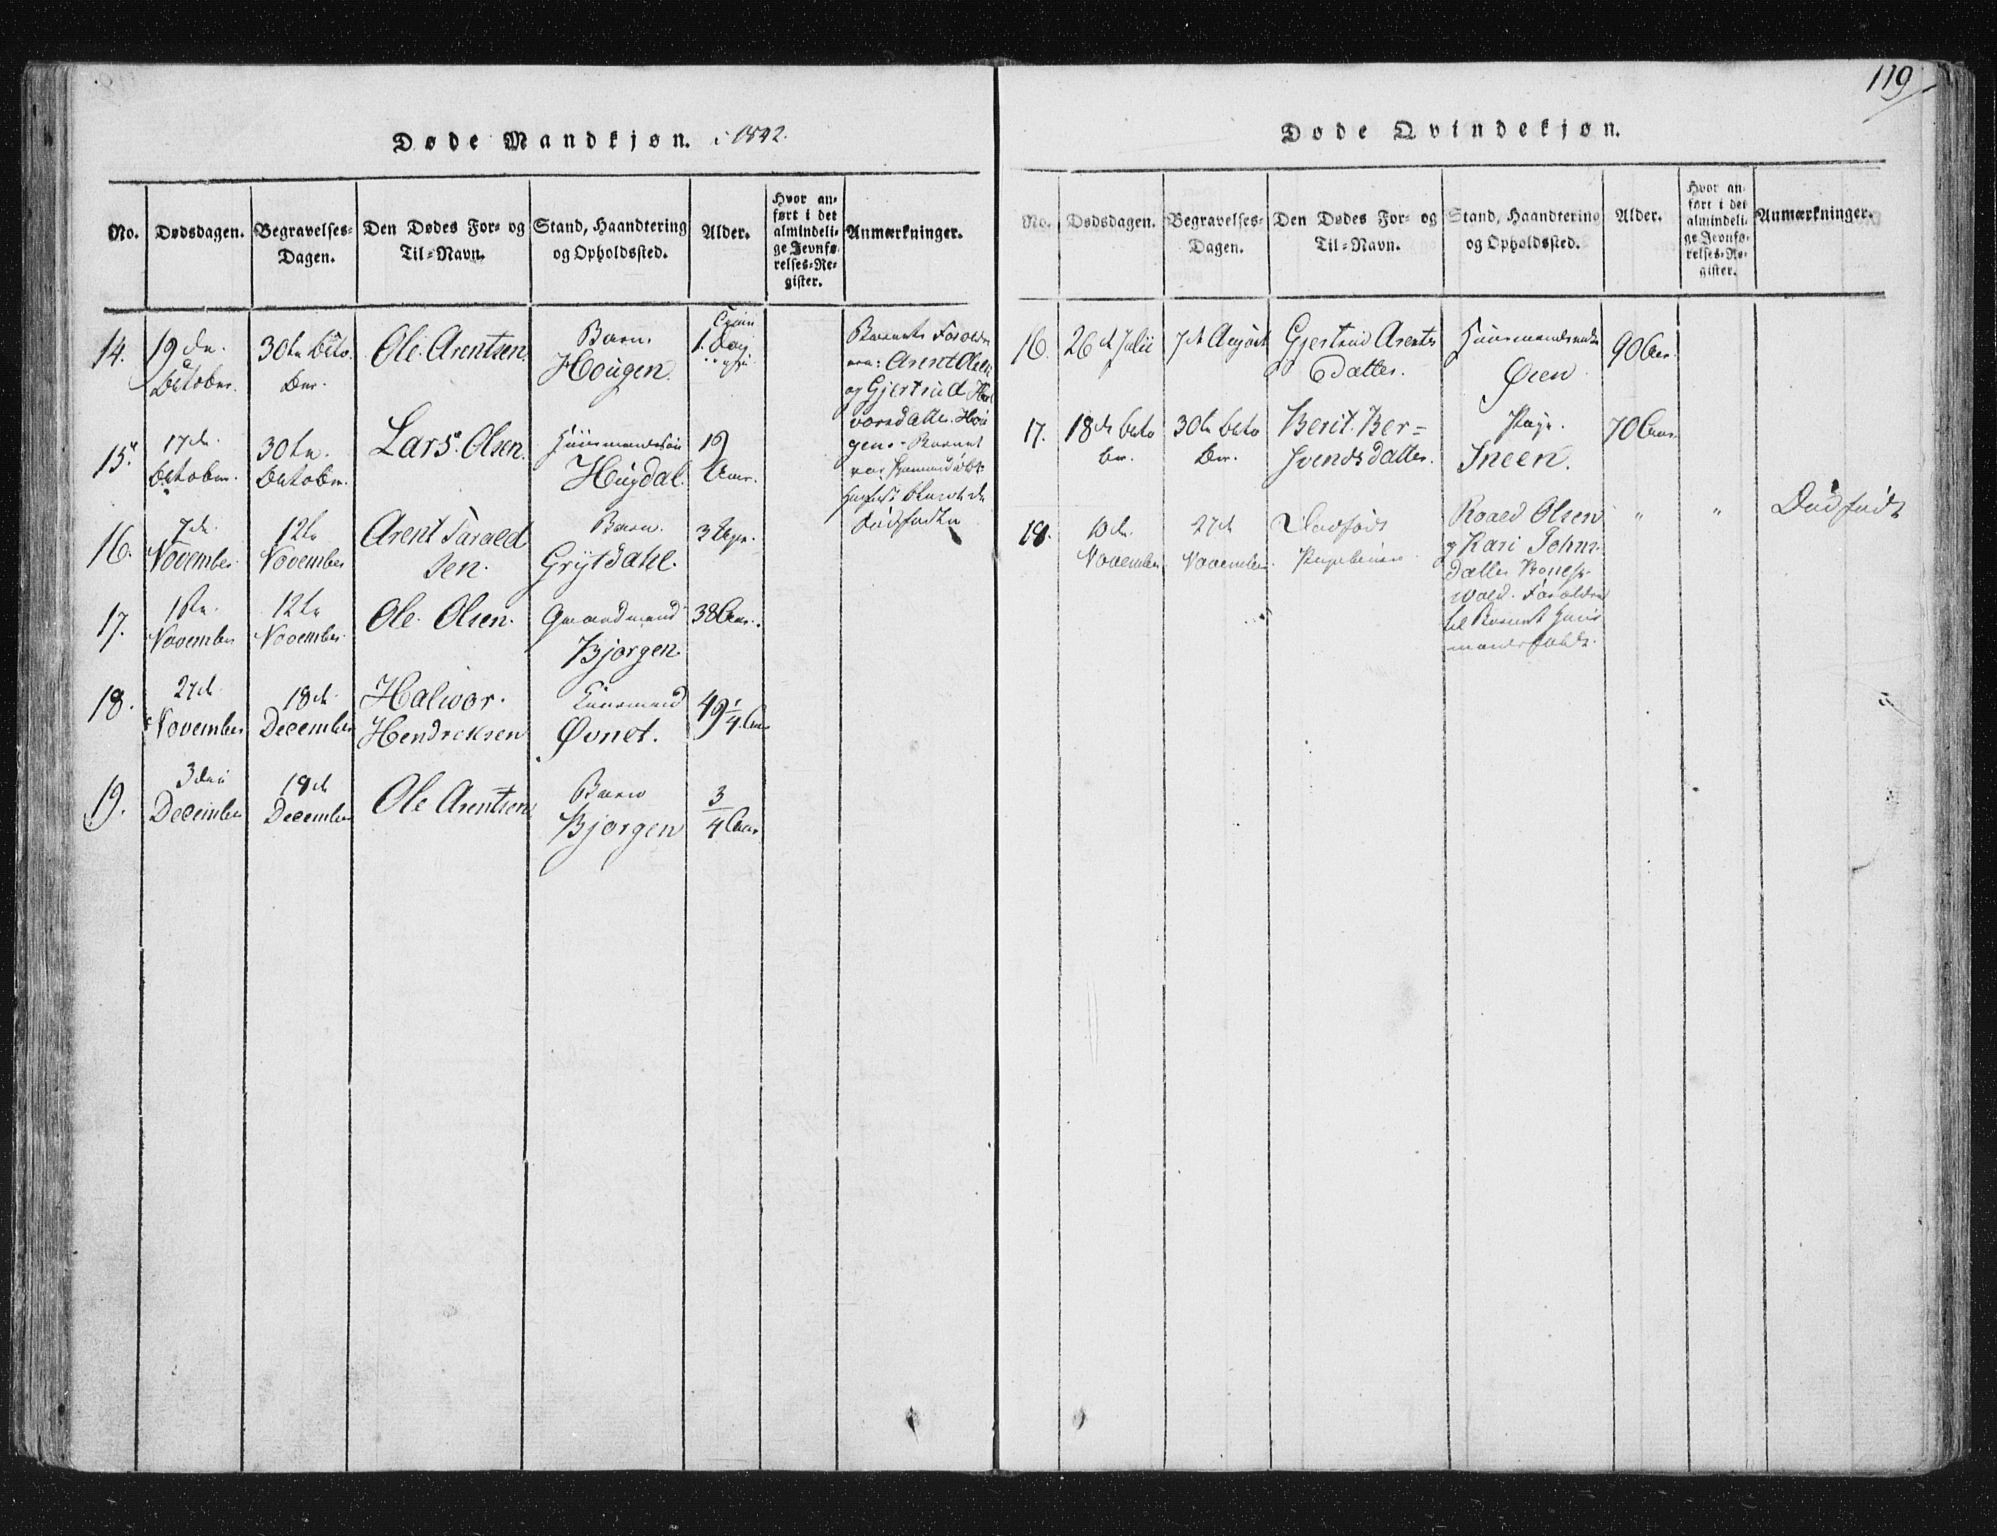 119
Døde Mandkjøn. i 1842.
No. Dødsdagen. Begravelses-Dagen. Den Dødes For- og Til-Navn. Stand, Haandtering og Opholdssted. Alder. Hvor anført i det almindelige Jevnførelses-Register. Anmærkninger.
14. 19de October. 30te October Ole Arentsen. Barn. Hougen. 1. Dag Barnets Forældre Arent Olsen
og Gjertrud Hal
vorsdatter Hou
gen. Barnet
var hjemmedøbt
15. 17de October. 30te October. Lars Olsen. Huusmandssøn Hugdal. 19 Aar.
16. 7de November 12te November Arent Taraldsen. Barn. Grytdahl. 3 Uger.
17. November 12te November Ole Olsen. Gaardmand Bjorgen. 38 Aar.
18. 27de November 18de December Halwor Hendreksen Huusmand Øvnet. 49 1/4 Aar
19. 3die December 18de December Ole Arentsen Barn Bjorgen 3/4 Aar
Døde Qvindekjøn.
No. Dødsdagen. Begravelses-Dagen. Den Dødes For- og Til-Navn. Stand, Haandtering og Opholdssted. Alder. Hvor anført i det almindelige Jevnførelses-Register. Anmærkninger.
16. 26de Julii 7de August Gjertrud Arentsdatter. Huusmandsenke Øien 90 Aar
17. 18de October. 30te October. Berit Ber=
svendsdatter. Pige. Ineen. 70 Aar
18. 10de November 27de November Dødfødt Pigebarn Roald Olsen
og Kari Johns
datter
wold. Forældre
til Barnet Huus
mandsfolk. " " Dødfødt